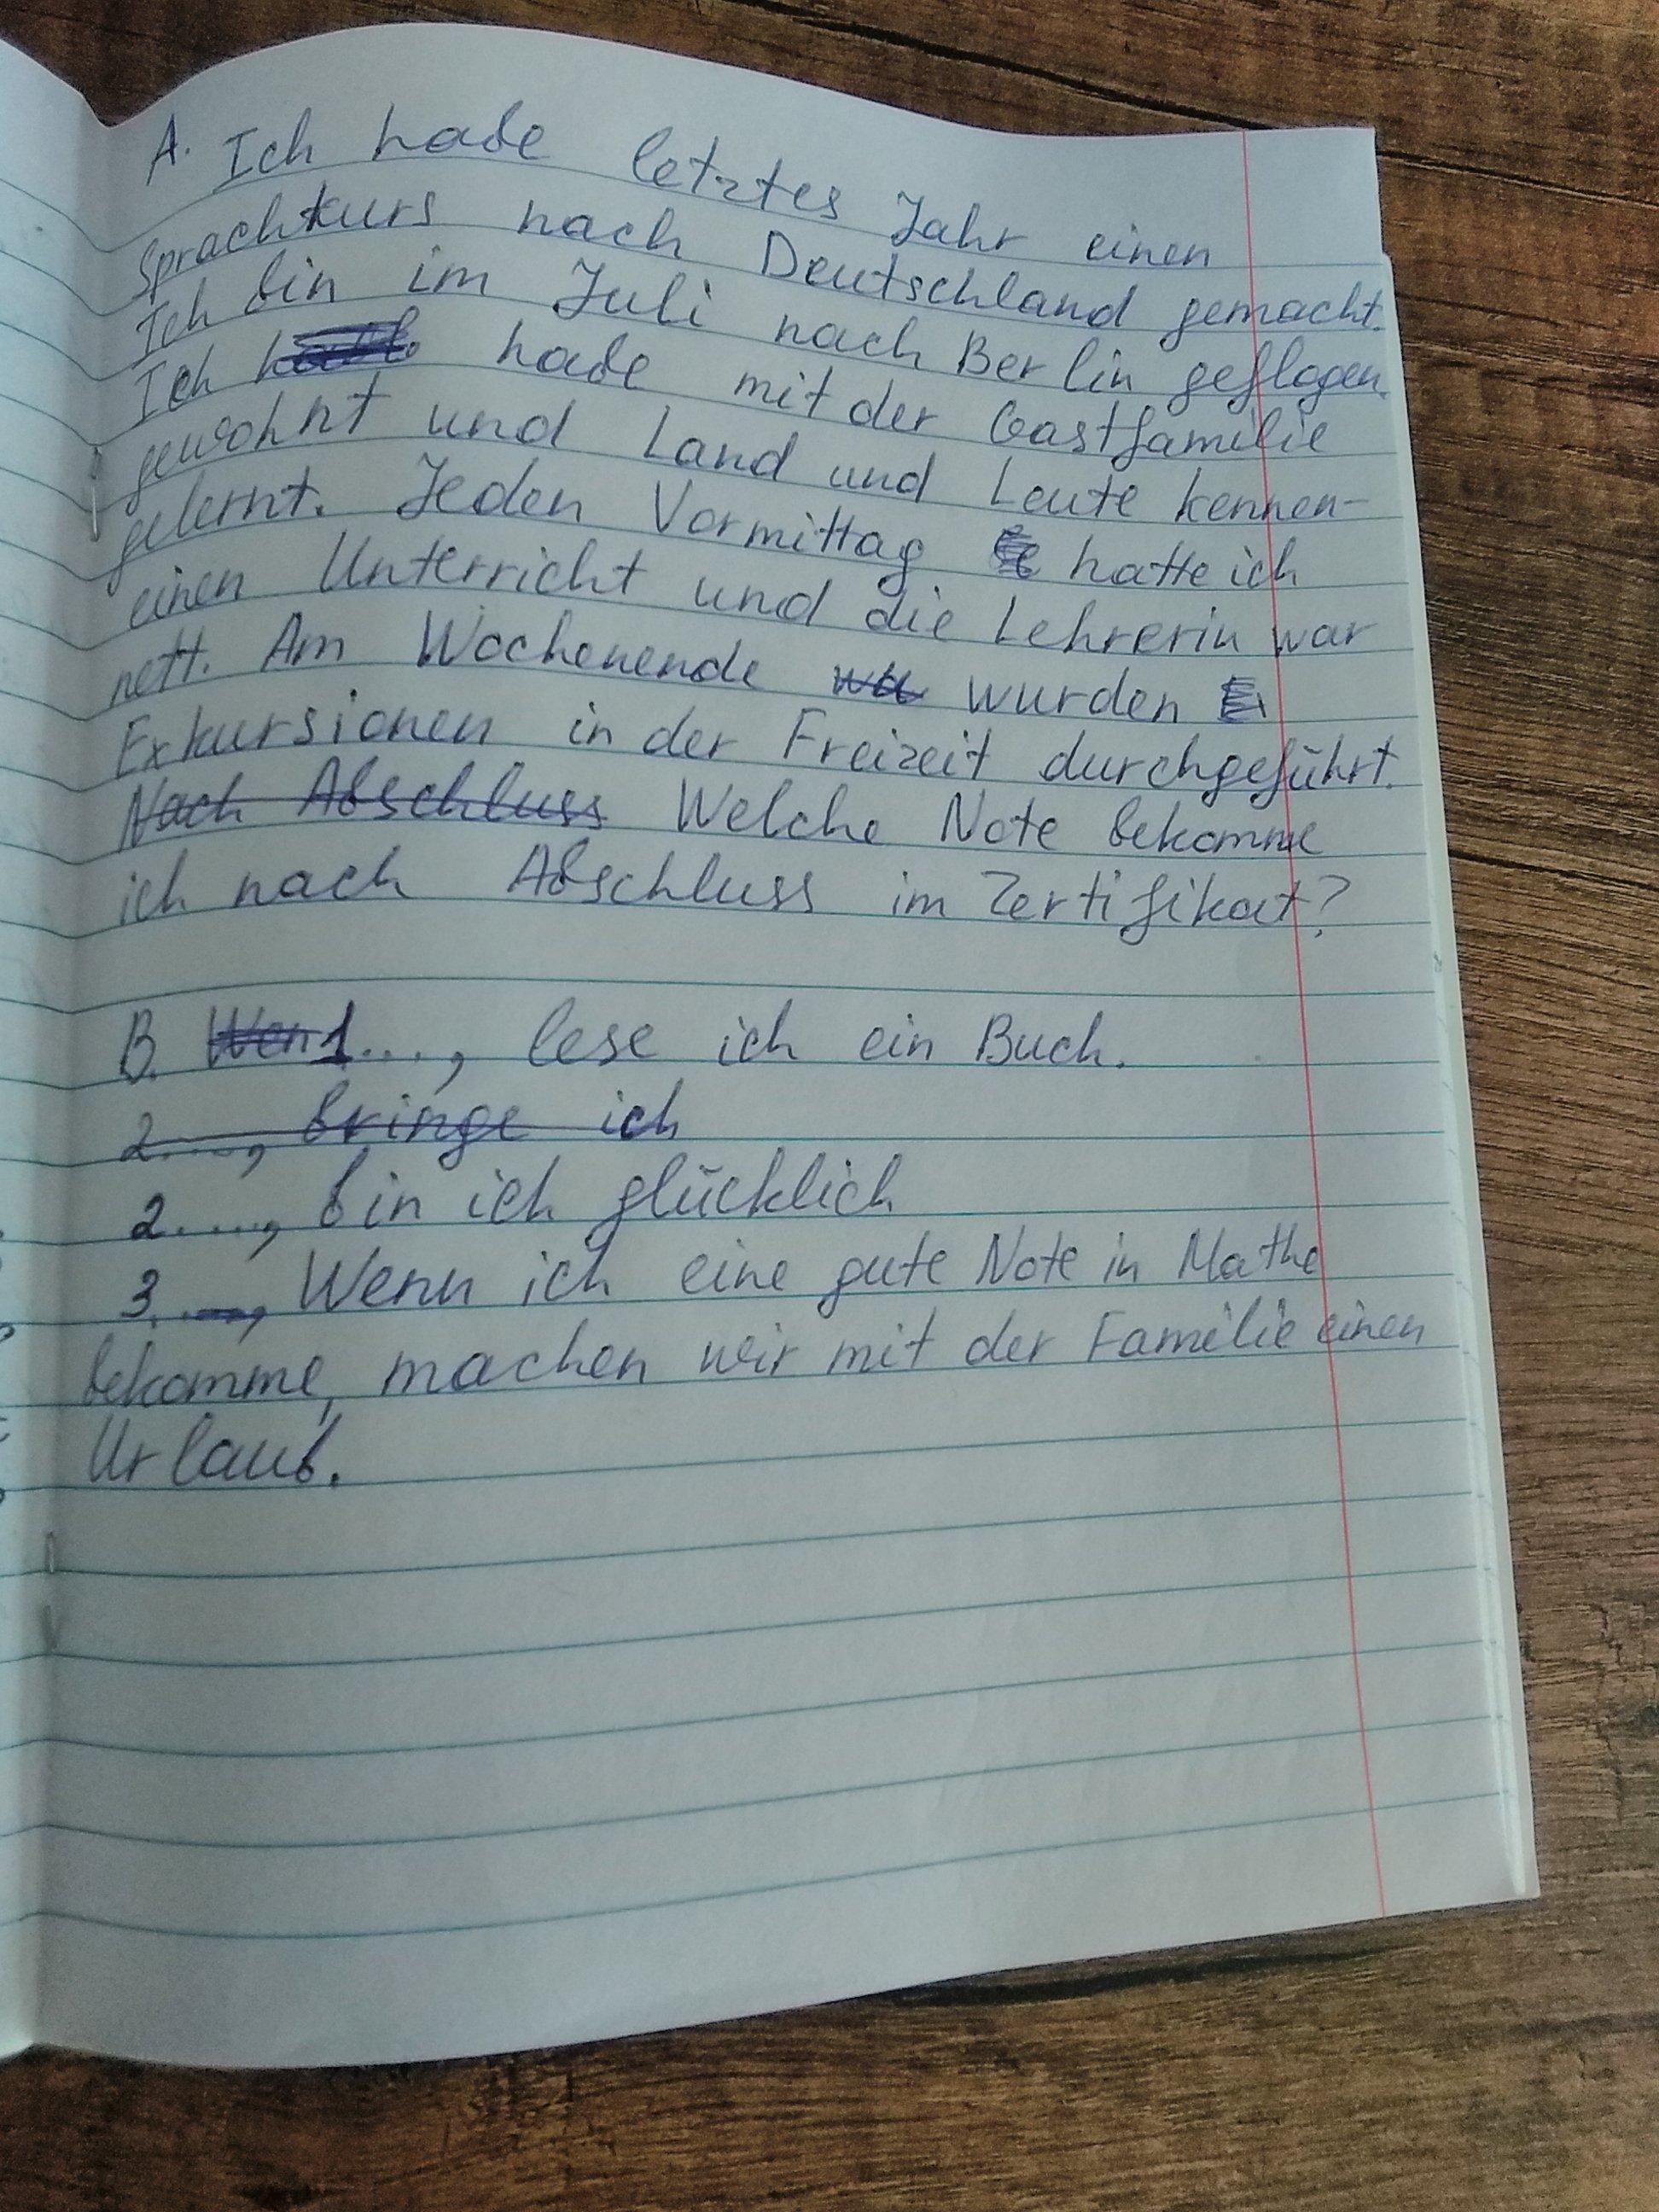 A. Ich habe letztes Jahr einen
Sprachkurs nach Deutschland gemacht.
Ich bin im Juli nach Berlin geflogen.
Ich habe mit der Gastfamilie
gewohnt und Land und Leute kennen-
gelernt. Jeden Vormittag hatte ich
einen Unterricht und die Lehrerin war
nett. Am Wochenende wurden
Exkursionen in der Freizeit durchgeführt.
Nach Abschluss Welche Note bekomme
ich nach Abschluss im Zertifikat?
B. 1...., lese ich ein Buch.
2....., bringe ich
2....., bin ich glücklich
3. Wenn ich eine gute Note in Mathe
bekomme, machen wir mit der Familie einen
Urlaub.